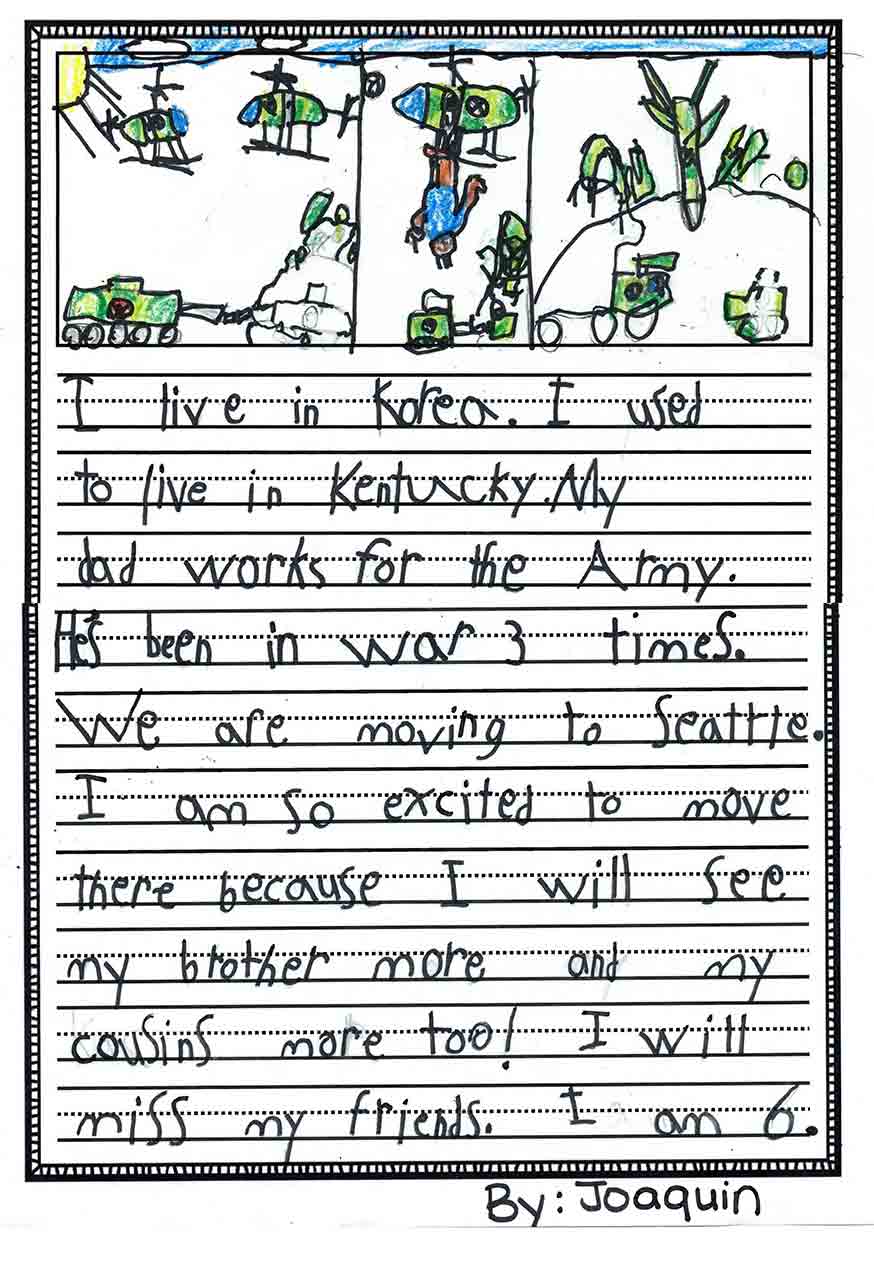 I live in Korea. I used
to live in Kentucky. My
dad works for the Army.
He's been in war 3 times.
We are moving to Seattle.
I am so excited to move
there because I will see
my brother more and my
cousins more too! I will
miss my friends. I am 6.
By: Joaquin